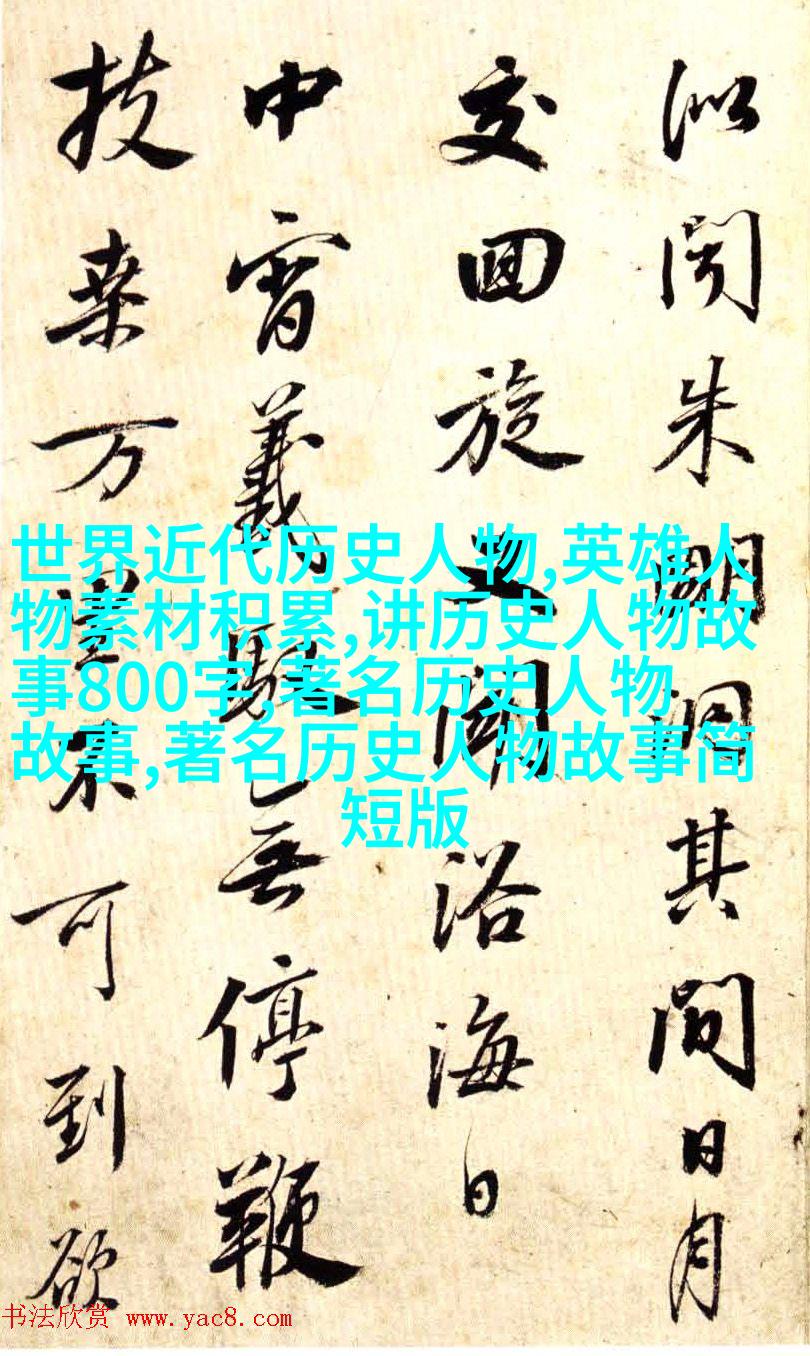 似闻朱明洞其间日月
交回旋又闻浴海日
中宵義馭无停鞭
扶桒万里不可到欲
世界近代历史人物,英雄人
物素材积累,讲历史人物故
事800字,著名历史人物
故事,著名历史人物故事简
短版
书法欣赏 www.yac8.com